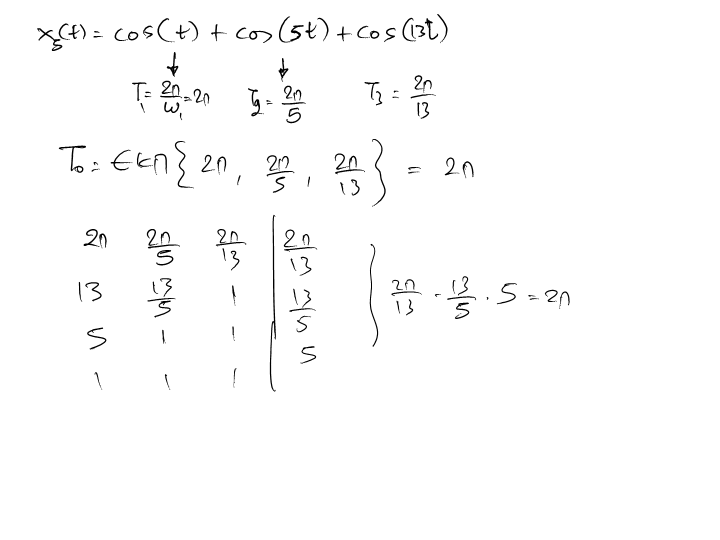 x₅(t) = cos(t) + cos(5t) + cos(13t)
T₁ = 2π/ω₁ = 2π   T₂ = 2π/5   T₃ = 2π/13
T₀ = ΕΚΠ{2π, 2π/5, 2π/13} = 2π
2π   2π/5   2π/13 | 2π/13
13   13/5   1 | 13/5   } 2π/13 · 13/5 · 5 = 2π
5   1   1 | 5
1   1   1 |